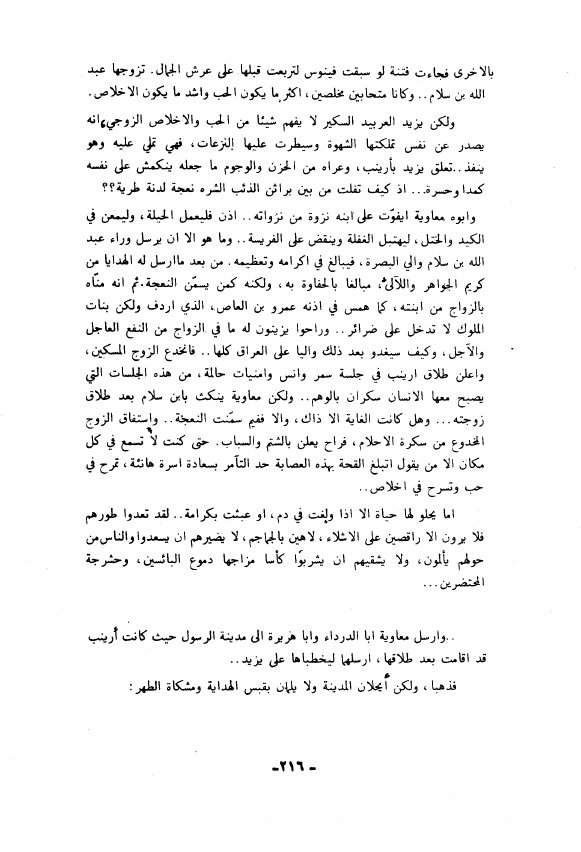 بالاخرى فجاءت فتنة لو سبقت فينوس لتربعت قبلها على عرش الجمال. تزوجها عبد
الله بن سلام.. وكانا متحابين مخلصين، اكثر ما يكون الحب واشد ما يكون الاخلاص.
ولكن يزيد العربيد السكير لا يفهم شيئا من الحب والاخلاص الزوجي، انه
يصدر عن نفس تملكتها الشهوة وسيطرت عليها النزعات، فهي تملي عليه وهو
ينفذ.. تعلق يزيد بأرينب، وعراه من الحزن والوجوم ما جعله ينكمش على نفسه
كمدا وحسرة... اذ كيف تفلت من بين براثن الذئب الشره نعجة لدنة طرية؟؟
وابوه معاوية ايفوّت على ابنه نزوة من نزواته.. اذن فليعمل الحيلة، وليمعن في
الكيد والختل، ليهتبل الغفلة وينقض على الفريسة.. وما هو الا ان يرسل وراء عبد
الله بن سلام والي البصرة، فيبالغ في اكرامه وتعظيمه. من بعد ماارسل له الهدايا من
كريم الجواهر واللآلئ، مبالغا بالحفاوة به، ولكنه كمن يسمّن النعجة. ثم انه منّاه
بالزواج من ابنته، كما همس في اذنه عمرو بن العاص، الذي اردف ولكن بنات
الملوك لا تدخل على ضرائر.. وراحوا يزينون له ما في الزواج من النفع العاجل
والآجل، وكيف سيغدو بعد ذلك واليا على العراق كلها.. فانخدع الزوج المسكين،
واعلن طلاق ارينب في جلسة سمر وانس وامنيات حالمة، من هذه الجلسات التي
يصبح معها الانسان سكران بالوهم.. ولكن معاوية ينكث بابن سلام بعد طلاق
زوجته... وهل كانت الغاية الا ذاك، والا ففيم سمّنت النعجة.. واستفاق الزوج
المخدوع من سكرة الاحلام، فراح يعلن بالشتم والسباب. حتى كنت لا تسمع في كل
مكان الا من يقول اتبلغ القحة بهذه العصابة حد التآمر بسعادة اسرة هانئة، تمرح في
حب وتسرح في اخلاص..
اما يحلو لها حياة الا اذا ولغت في دم، او عبثت بكرامة.. لقد تعدوا طورهم
فلا يرون الا راقصين على الاشلاء، لاهين بالجماجم، لا يضيرهم ان يسعدوا والناس من
حولهم يألمون، ولا يشقيهم ان يشربوا كأسا مزاجها دموع البائسين، وحشرجة
المحتضرين...
..وارسل معاوية ابا الدرداء وابا هريرة الى مدينة الرسول حيث كانت أرينب
قد اقامت بعد طلاقها، ارسلهما ليخطباها على يزيد..
فذهبا، ولكن أيحلان المدينة ولا يلمان بقبس الهداية ومشكاة الطهر:
-٢١٦-